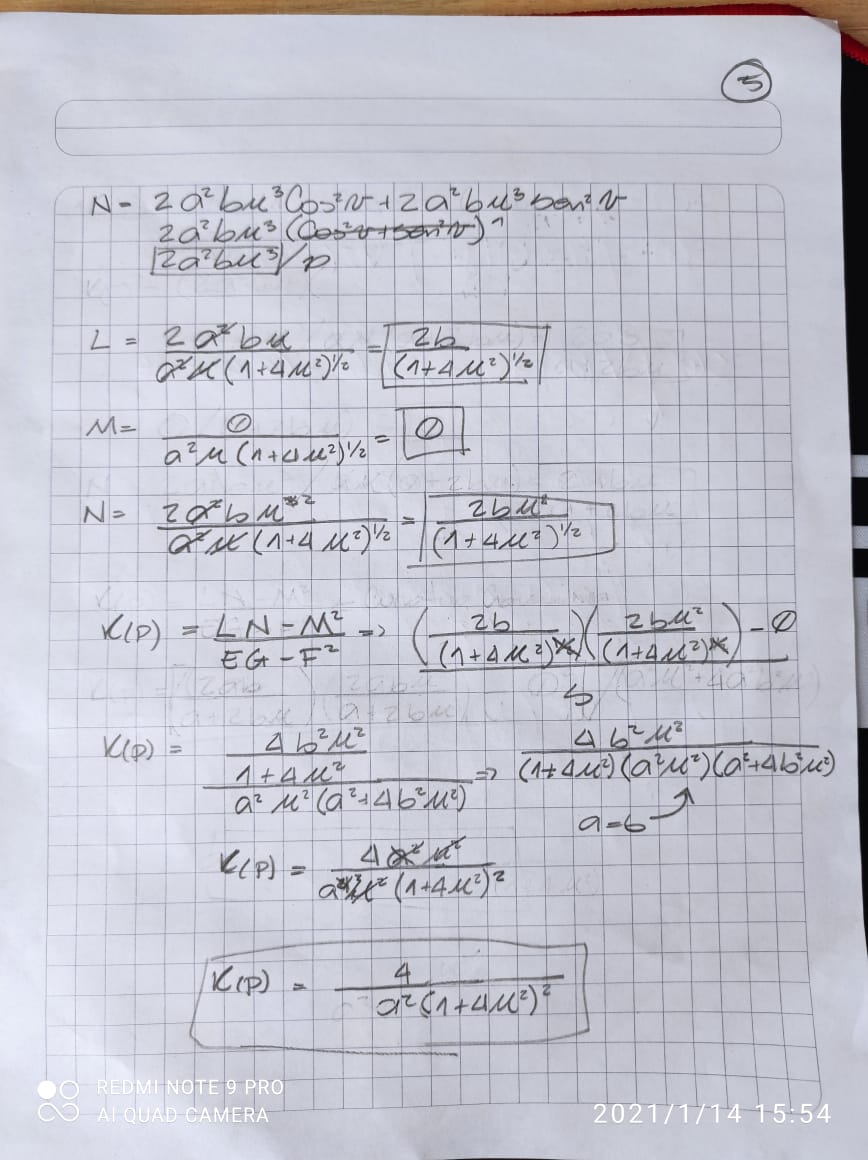 5
N = 2a²bu³Cos²v + 2a²bu³sen²v
2a²bu³(Cos²v+sen²v)¹
2a²bu³/p
L = 2a²bu / a²u(1+4u²)^1/2 = 2b / (1+4u²)^1/2
M = 0 / a²u(1+4u²)^1/2 = 0
N = 2a²bu³² / a²u(1+4u²)^1/2 = 2bu² / (1+4u²)^1/2
K(p) = LN-M² / EG-F² => (2b / (1+4u²)^½)(2bu² / (1+4u²)^½) - 0
K(p) = 4b²u² / 1+4u² / a²u²(a²+4b²u²) => 4b²u² / (1+4u²)(a²u²)(a²+4b²u²)
a=b
K(p) = 4a²u² / a⁴u²(1+4u²)²
K(p) = 4 / a²(1+4u²)²
REDMI NOTE 9 PRO
AI QUAD CAMERA
2021/1/14 15:54